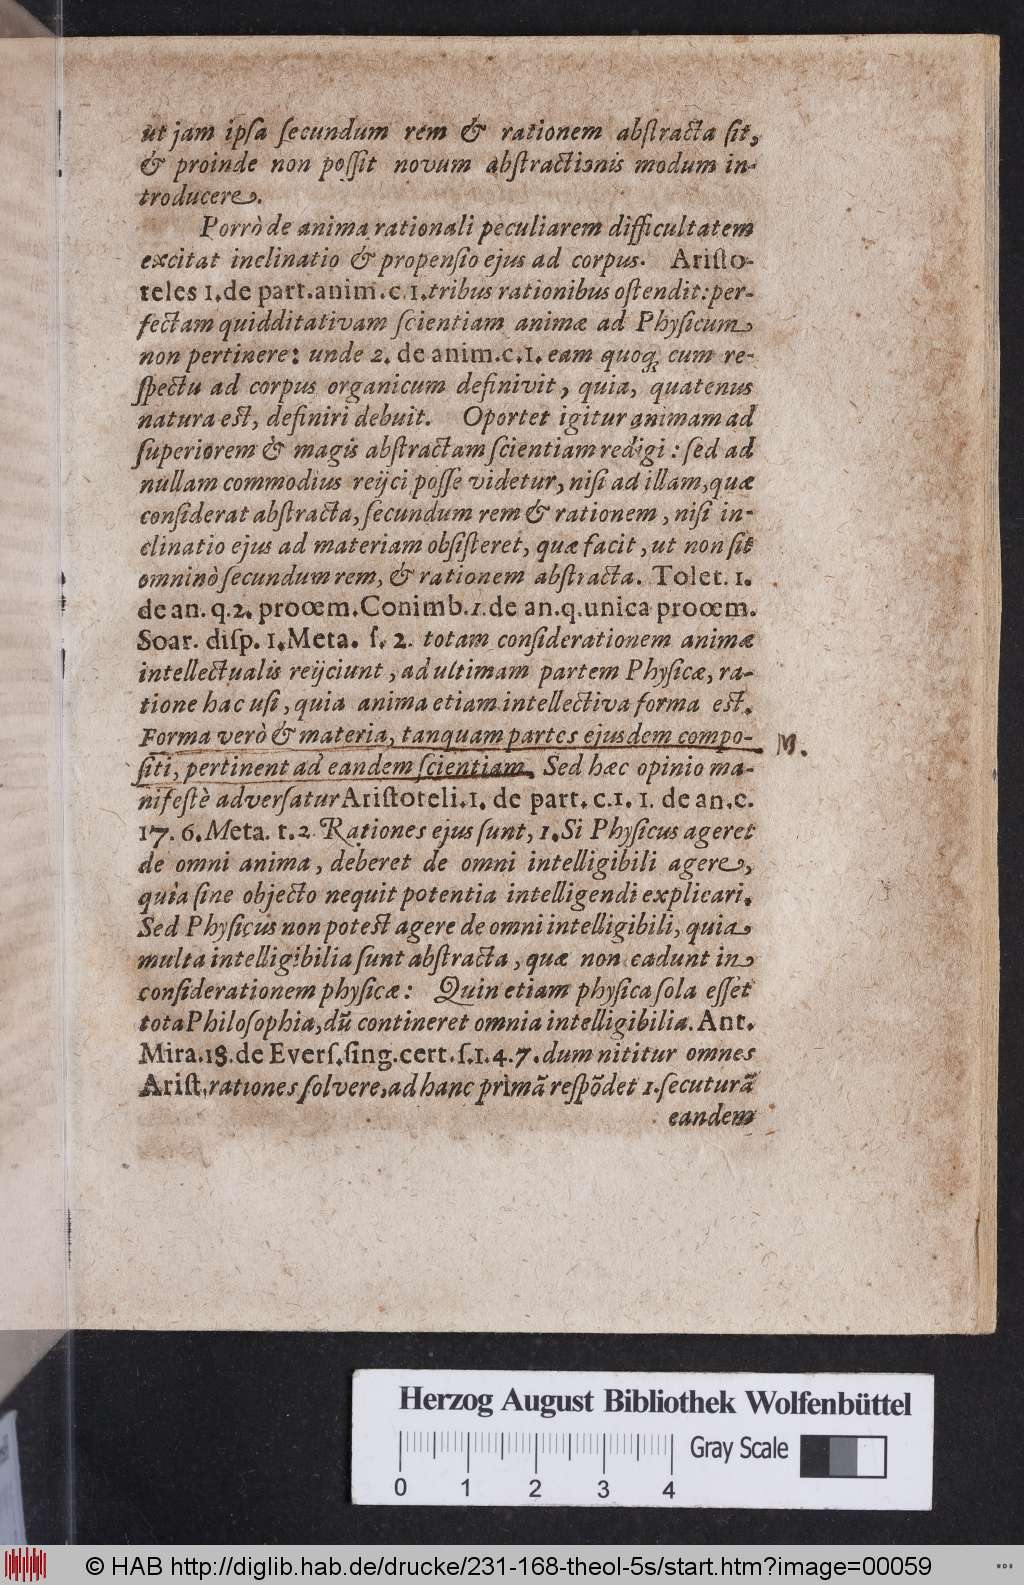 ut jam ipſa ſecundum rem & rationem abſtracta ſit,
& proinde non poſſit novum abſtractionis modum in-
troducere.
Porrò de anima rationali peculiarem difficultatem
excitat inclinatio & propenſio ejus ad corpus. Ariſto-
teles 1. de part. anim. c. 1. tribus rationibus oſtendit: per-
fectam quidditativam ſcientiam animæ ad Phyſicum
non pertinere: unde 2. de anim. c. 1. eam quoq; cum re-
ſpectu ad corpus organicum definivit, quia, quatenus
natura eſt, definiri debuit. Oportet igitur animam ad
ſuperiorem & magis abſtractam ſcientiam redigi: ſed ad
nullam commodius reijci poſſe videtur, niſi ad illam, quæ
conſiderat abſtracta, ſecundum rem & rationem, niſi in-
clinatio ejus ad materiam obſiſteret, quæ facit, ut non ſit
omninò ſecundum rem, & rationem abſtracta. Tolet. 1.
de an. q. 2. proœm. Conimb. 1. de an. q. unica proœm.
Soar. diſp. 1. Meta. ſ. 2. totam conſiderationem animæ
intellectualis reijciunt, ad ultimam partem Phyſicæ, ra-
tione hac uſi, quia anima etiam intellectiva forma eſt.
Forma verò & materia, tanquam partes ejusdem compo-
ſiti, pertinent ad eandem ſcientiam. Sed hæc opinio ma-
M.
nifeſtè adverſatur Ariſtoteli. 1. de part. c. 1. 1. de an. c.
17. 6. Meta. t. 2 Rationes ejus ſunt, 1. Si Phyſicus ageret
de omni anima, deberet de omni intelligibili agere,
quia ſine objecto nequit potentia intelligendi explicari.
Sed Phyſicus non poteſt agere de omni intelligibili, quia
multa intelligibilia ſunt abſtracta, quæ non cadunt in
conſiderationem phyſicæ: Quin etiam phyſica ſola eſſet
tota Philoſophia, dũ contineret omnia intelligibilia. Ant.
Mira. 18. de Everſ. ſing. cert. ſ. 1. 4. 7. dum nititur omnes
Ariſt. rationes ſolvere, ad hanc primã reſpõdet 1. ſecuturã
eandem
Herzog August Bibliothek Wolfenbüttel
Gray Scale
0 1 2 3 4
© HAB http://diglib.hab.de/drucke/231-168-theol-5s/start.htm?image=00059